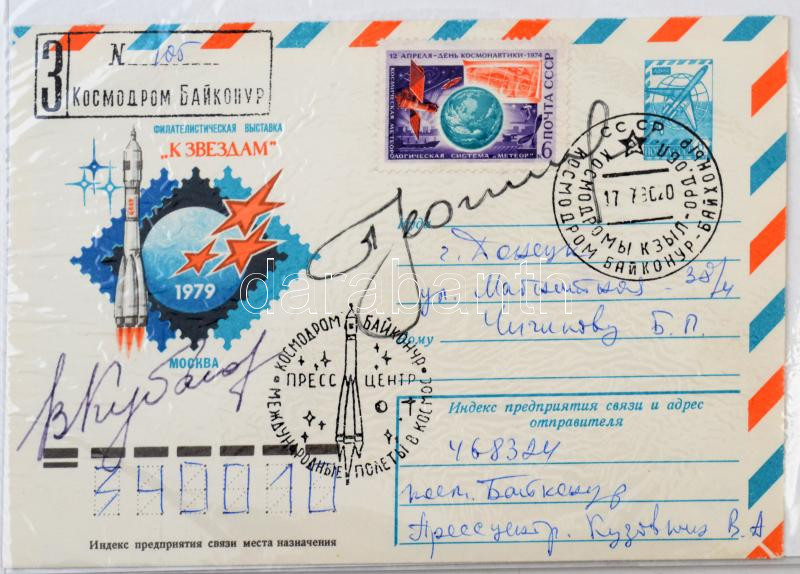 З
N 105
Космодром Байконур
ФИЛАТЕЛИСТИЧЕСКАЯ ВЫСТАВКА
„К ЗВЕЗДАМ"
1979
МОСКВА
12 АПРЕЛЯ-ДЕНЬ КОСМОНАВТИКИ-1974
КОСМИЧЕСКАЯ МЕТЕО-
РОЛОГИЧЕСКАЯ СИСТЕМА „МЕТЕОР"
6 ПОЧТА СССР
СССР
КОСМОДРОМЫ КЗЫЛ-ОРД. ОБЛ.
КОСМОДРОМ БАЙКОНУР-БАЙКОНЫР
17 7
Куда
г. Донецк
ул. Магнитная - 38/4
Кому
Чичикову Б. П.
КОСМОДРОМ БАЙКОНУР
ПРЕСС ЦЕНТР
МЕЖДУНАРОДНЫЕ ПОЛЕТЫ В КОСМОС
ВКубасов
Индекс предприятия связи и адрес
отправителя
468324
пос. Байконур
Прессцентр.
В. А
340010
Индекс предприятия связи места назначения
darabanth